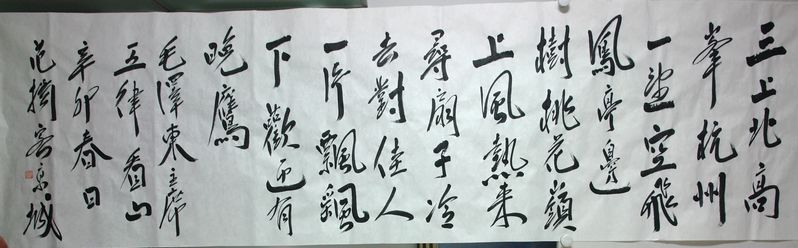 三上北高
峯杭州
一望空飛
鳳亭邊
樹桃花嶺
上風熱来
尋扇子冷
去對佳人
一片飄飄
下歡迎有
晚鷹
毛澤東主席
五律看山
辛卯春日
范客京城